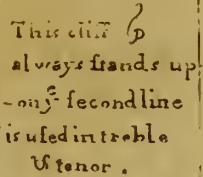 This cliff
always ſtands up
-on yͤ ſecond line
is uſed in treble
& tenor.